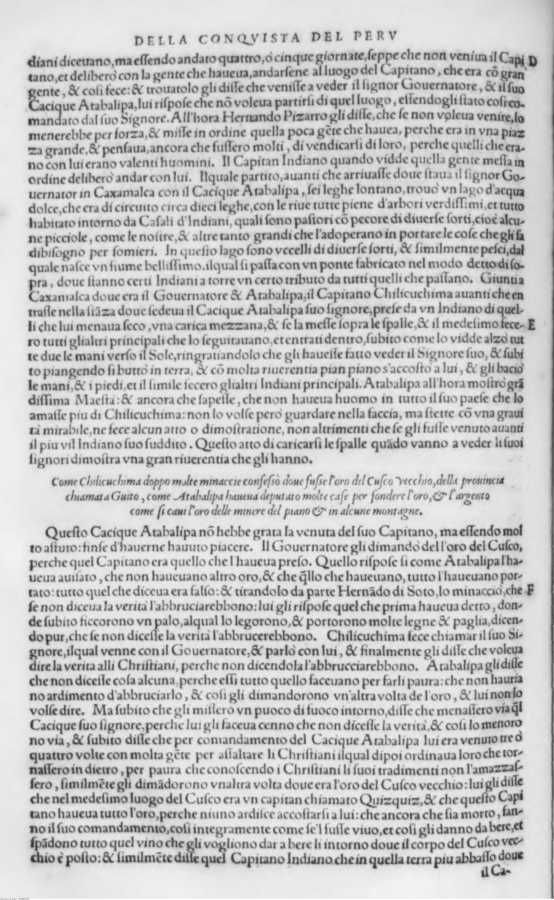 DELLA CONQVISTA DEL PERV
diani diceuano, ma essendo andato quattro, ò cinque giornate, seppe che non veniua il Capi D
tano, et deliberò con la gente che haueua, andarsene al luogo del Capitano, che era cõ gran
gente, & cosi fece: & trouatolo gli disse che venisse a veder il signor Gouernatore, & il suo
Cacique Atabalipa, lui rispose che nõ voleua partirsi di quel luogo, essendogli stato cosi co
mandato dal suo Signore. All'hora Hernando Pizarro gli disse, che se non voleua venire, lo
menerebbe per forza, & misse in ordine quella poca gẽte che hauea, perche era in vna piaz
za grande, & pensaua, ancora che fussero molti, di vendicarsi di loro, perche quelli che era-
no con lui erano valenti huomini. Il Capitan Indiano quando vidde quella gente messa in
ordine deliberò andar con lui. Ilquale partito, auanti che arriuasse doue staua il signor Go-
uernator in Caxamalca con il Cacique Atabalipa, sei leghe lontano, trouò vn lago d'acqua
dolce, che era di circuito circa dieci leghe, con le riue tutte piene d'arbori verdissimi, et tutto
habitato intorno da Casali d'Indiani, quali sono pastori cõ pecore di diuerse sorti, cioè alcu-
ne picciole, come le nostre, & altre tanto grandi che l'adoperano in portare le cose che gli fa
dibisogno per somieri. In questo lago sono vccelli di diuerse sorti, & similmente pesci, dal
quale nasce vn fiume bellissimo, ilqual si passa con vn ponte fabricato nel modo detto di so-
pra, doue stanno certi Indiani a torre vn certo tributo da tutti quelli che passano. Giunti a
Caxamalca doue era il Gouernatore & Atabalipa, il Capitano Chilicuchima auanti che en
trasse nella stãza doue sedeua il Cacique Atabalipa suo signore, prese da vn Indiano di quel-
li che lui menaua seco, vna carica mezzana, & se la messe sopra le spalle, & il medesimo fece- E
ro tutti glialtri principali che lo seguitauano, et entrati dentro, subito come lo vidde alzò tut
te due le mani verso il Sole, ringratiandolo che gli hauesse fatto veder il Signore suo, & subi
to piangendo si buttò in terra, & cõ molta riuerentia pian piano s'accostò a lui, & gli baciò
le mani, & i piedi, et il simile fecero glialtri Indiani principali. Atabalipa all'hora mostrò grã
dissima Maestà: & ancora che sapesse, che non haueua huomo in tutto il suo paese che lo
amasse piu di Chilicuchima: non lo volse però guardare nella faccia, ma stette cõ vna graui
tà mirabile, ne fece alcun atto o dimostratione, non altrimenti che se gli fusse venuto auanti
il piu vil Indiano suo suddito. Questo atto di caricarsi le spalle quãdo vanno a veder li suoi
signori dimostra vna gran riuerentia che gli hanno.
Come Chilicuchima doppo molte minaccie confessò doue fusse l'oro del Cusco vecchio, della prouincia
chiamata Guito, come Atabalipa haueua deputato molte case per fondere l'oro, & l'argento
come si caui l'oro delle minere del piano & in alcune montagne.
Questo Cacique Atabalipa nõ hebbe grata la venuta del suo Capitano, ma essendo mol
to astuto: finse d'hauerne hauuto piacere. Il Gouernatore gli dimandò dell'oro del Cusco,
perche quel Capitano era quello che l'haueua preso. Quello rispose si come Atabalipa l'ha-
ueua auisato, che non haueuano altro oro, & che q̃llo che haueuano, tutto l'haueuano por-
tato: tutto quel che diceua era falso: & tirandolo da parte Hernãdo di Soto, lo minacciò, che F
se non diceua la verità l'abbruciarebbono: lui gli rispose quel che prima haueua detto, don-
de subito ficcorono vn palo, alqual lo legorono, & portorono molte legne & paglia, dicen-
do pur, che se non dicesse la verità l'abbrucerebbono. Chilicuchima fece chiamar il suo Si-
gnore, ilqual venne con il Gouernatore, & parlò con lui, & finalmente gli disse che voleua
dire la verità alli Christiani, perche non dicendola l'abbrucciarebbono. Atabalipa gli disse
che non dicesse cosa alcuna, perche essi tutto quello faceuano per farli paura: che non hauria
no ardimento d'abbruciarlo, & cosi gli dimandorono vn'altra volta de l'oro, & lui non lo
volse dire. Ma subito che gli missero vn puoco di fuoco intorno, disse che menassero via q̃l
Cacique suo signore, perche lui gli faceua cenno che non dicesse la verità, & cosi lo menoro
no via, & subito disse che per comandamento del Cacique Atabalipa lui era venuto tre ò
quattro volte con molta gẽte per assaltare li Christiani ilqual dipoi ordinaua loro che tor-
nassero in dietro, per paura che conoscendo i Christiani li suoi tradimenti non l'amazzas-
sero, similmẽte gli dimãdorono vnaltra volta doue era l'oro del Cusco vecchio: lui gli disse
che nel medesimo luogo del Cusco era vn capitan chiamato Quizquiz, & che questo Capi
tano haueua tutto l'oro, perche niuno ardisce accostarsi a lui: che ancora che sia morto, fan-
no il suo comandamento, cosi integramente come se'l fusse viuo, et cosi gli danno da bere, et
spãdono tutto quel vino che gli vogliono dar a bere li intorno doue il corpo del Cusco vec-
chio è posto: & similmẽte disse quel Capitano Indiano che in quella terra piu abbasso doue
il Ca-